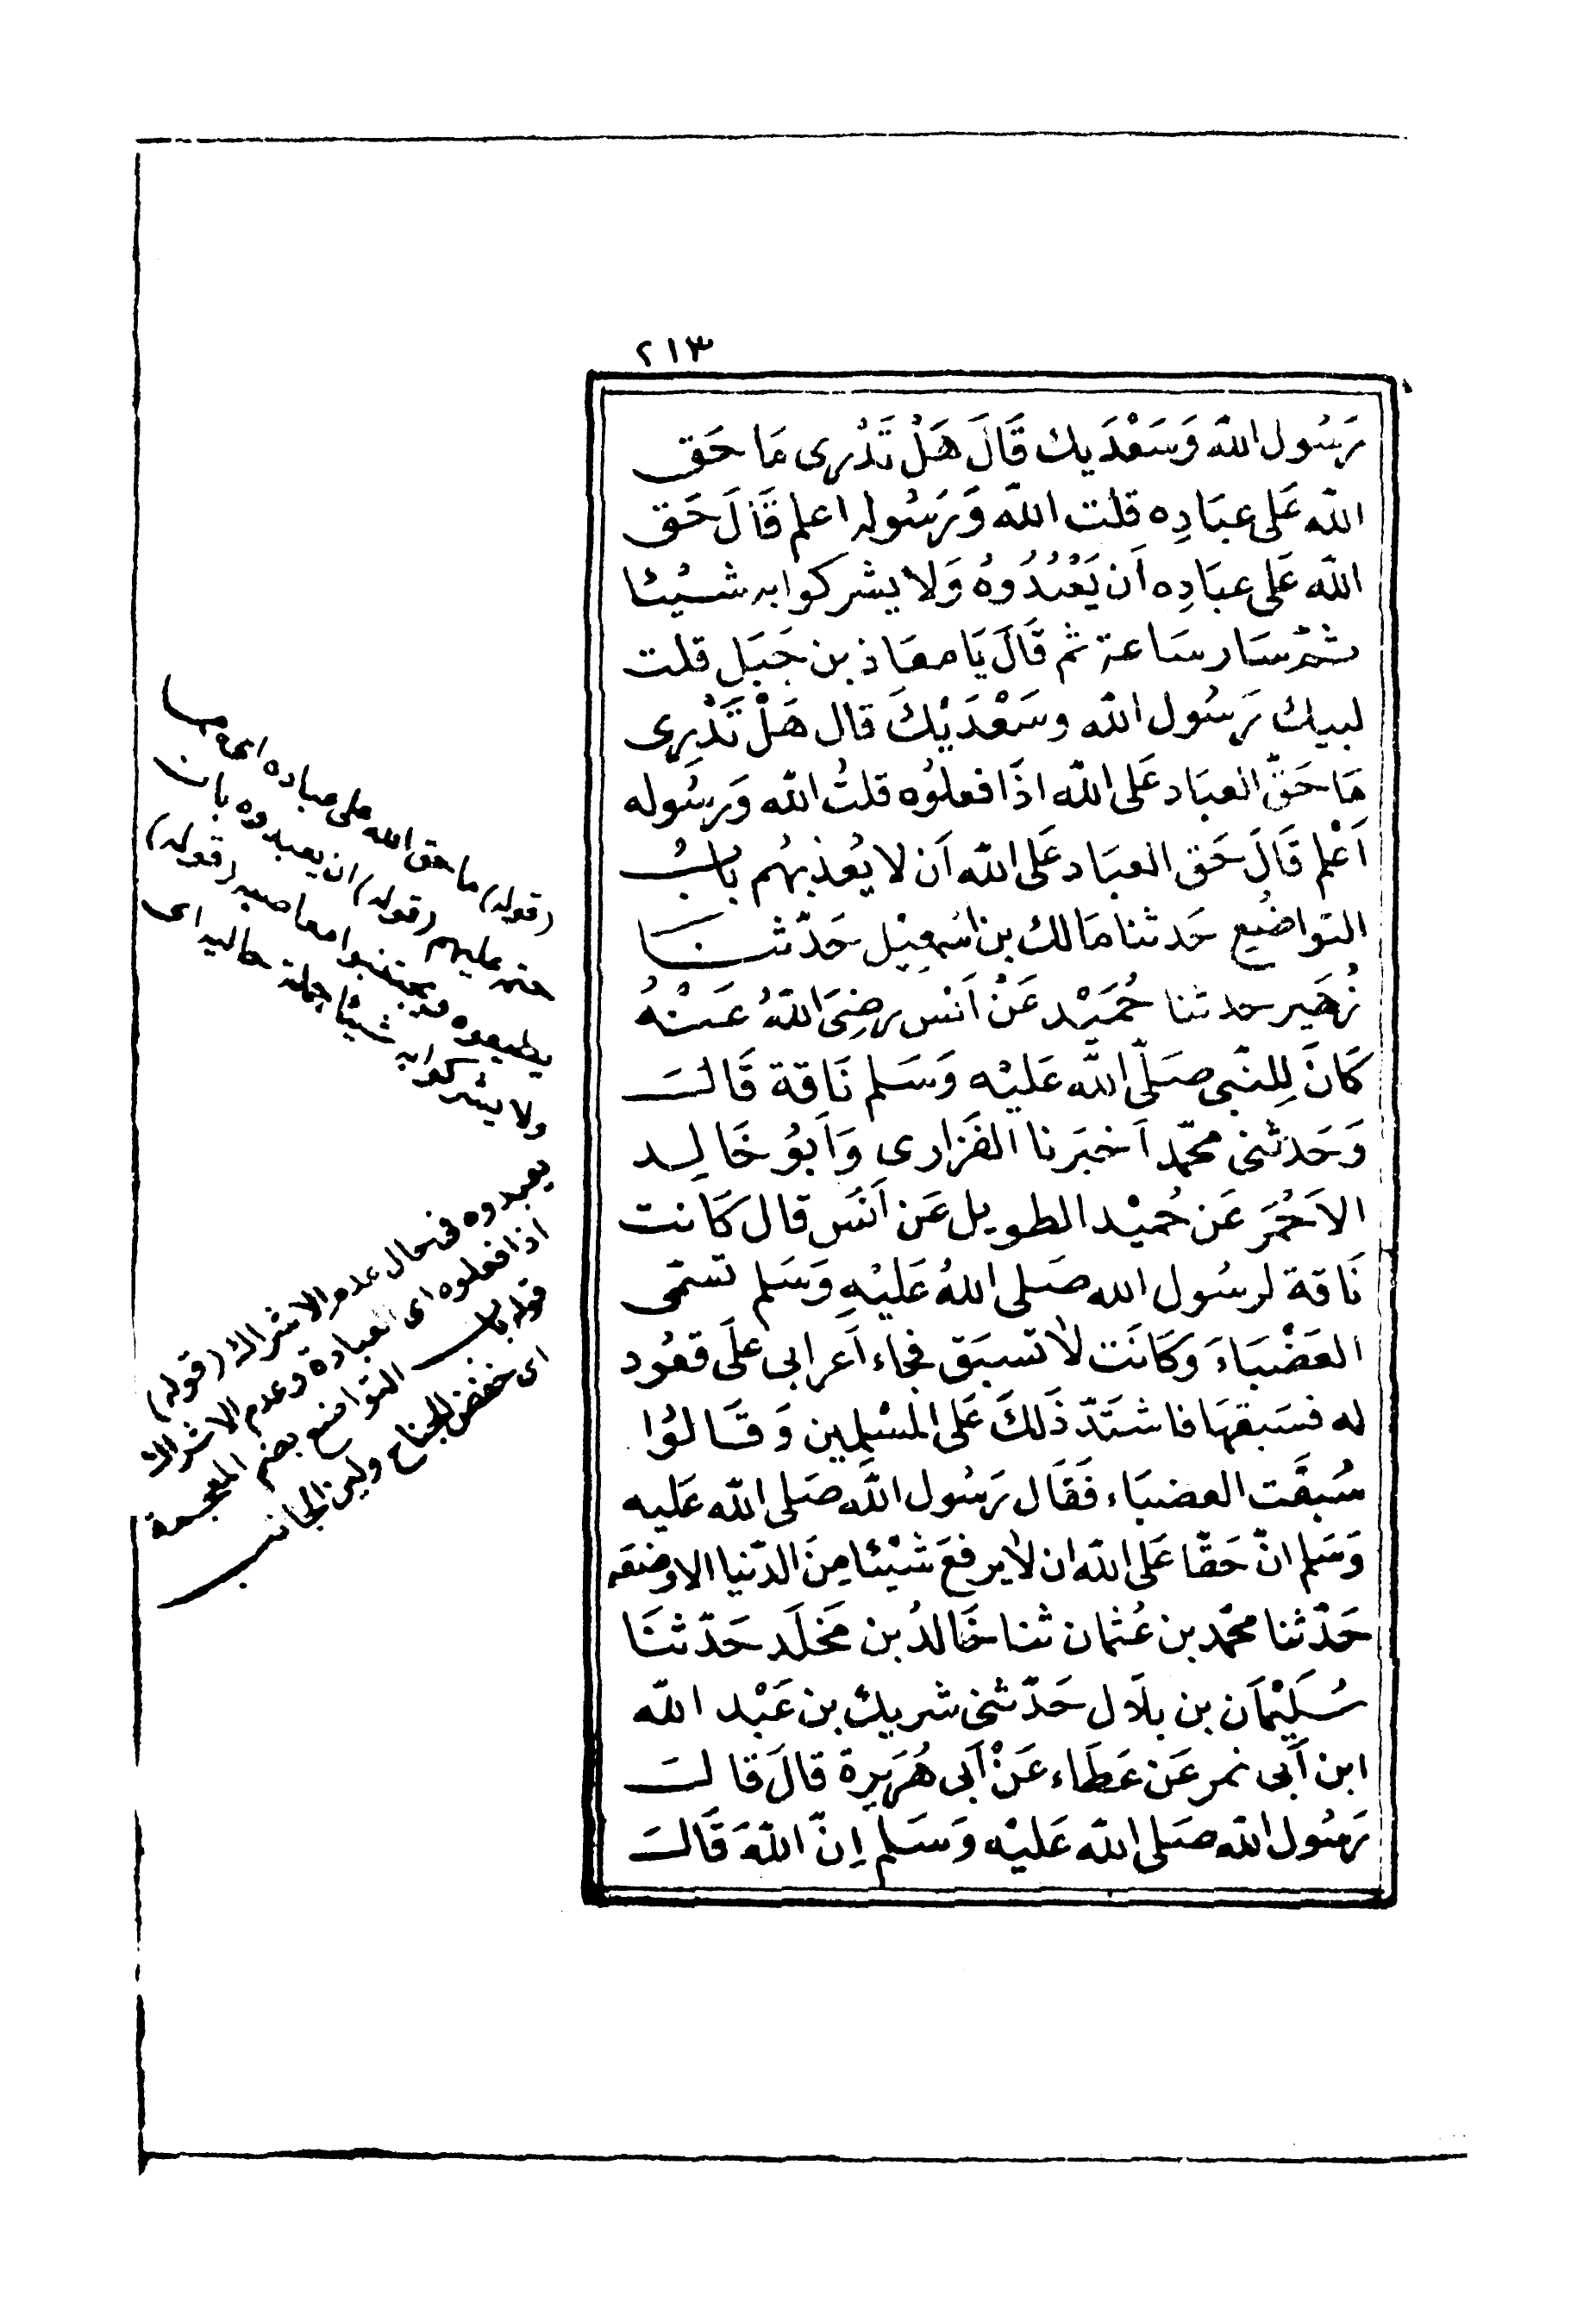 ٢١٣
رَسُول الله وَسَعْدَيك قَالَ هَلْ تَدْرى مَا حَق
الله عَلى عبَادِه قلت الله وَرَسُوله اعلم قَالَ حَق
الله عَلى عبَادِه اَن يَعْبُدُوهُ وَلا يشركوا به شَيْئا
ثمّ سَار سَاعة ثم قَالَ يَا معَاذ بن جَبَل قلت
لبيك رَسُول الله وسَعْدَيْكَ قال هَلْ تَدْرِى
مَا حَقّ العبَاد عَلى الله اذَا فعلوُه قلتُ الله وَرسُوله
اَعْلم قَالَ حَق العبَاد عَلى الله اَن لا يُعذبهُم بابُ
التواضُع حَدثنا مَالك بن اسْمعِيْل حَدّثنا
زُهَير حدثنا حُمَيْد عَنْ اَنَس رضِىَ اللهُ عَنْهُ
كَانَ لِلنّبى صَلّى الله عَليْه وَسَلم نَاقة قَالَ
وَحَدثنى محمّد اَخبَرنا الفَزارى وَاَبوُ خَالِد
الاَحْمَر عَن حُميْد الطويل عَن اَنَس قال كَانت
نَاقة لرسُول الله صَلى اللهُ عَليْهِ وَسَلم تسَمّى
العَضْبَاءَ وَكَانَت لا تسبَق فجاء اَعرابى علَى قعُود
له فسَبقهَا فاشتَدّ ذَلكَ عَلى المسْلِمين وَقَالوُا
سُبقَت العضبَاء فَقَال رَسُول الله صَلى الله عَليه
وَسَلم انّ حَقّا عَلى الله ان لا يرفعَ شَيْئا مِنَ الدّنيا الا وضَعَه
حَدّثنا محمّد بن عُثمان ثنا خَالدُ بن مَخلَد حَدّثنَا
سُلَيْمَان بن بلاَل حَدّثنى شريك بن عَبْد الله
ابن اَبى نمر عَن عَطَاء عَنْ اَبى هُرَيرة قالَ قال
رَسُول الله صَلى الله عَليْه وَسَلم اِنّ اللهَ قَالَ
(قوله) ما حق الله على عباده اى ما
حقه عليهم (قوله) ان يعبدوه بان
يطيعوه ويجتنبوا معاصيه (قوله)
ولا يشركوا به شيئا جملة حالية اى
يعبدوه فى حال عدم الاشراك (قوله)
اذا فعلوه اى العبادة وعدم الاشراك
قوله باب التواضع بضم المعجمة
اى خفض الجناح ولين الجانب